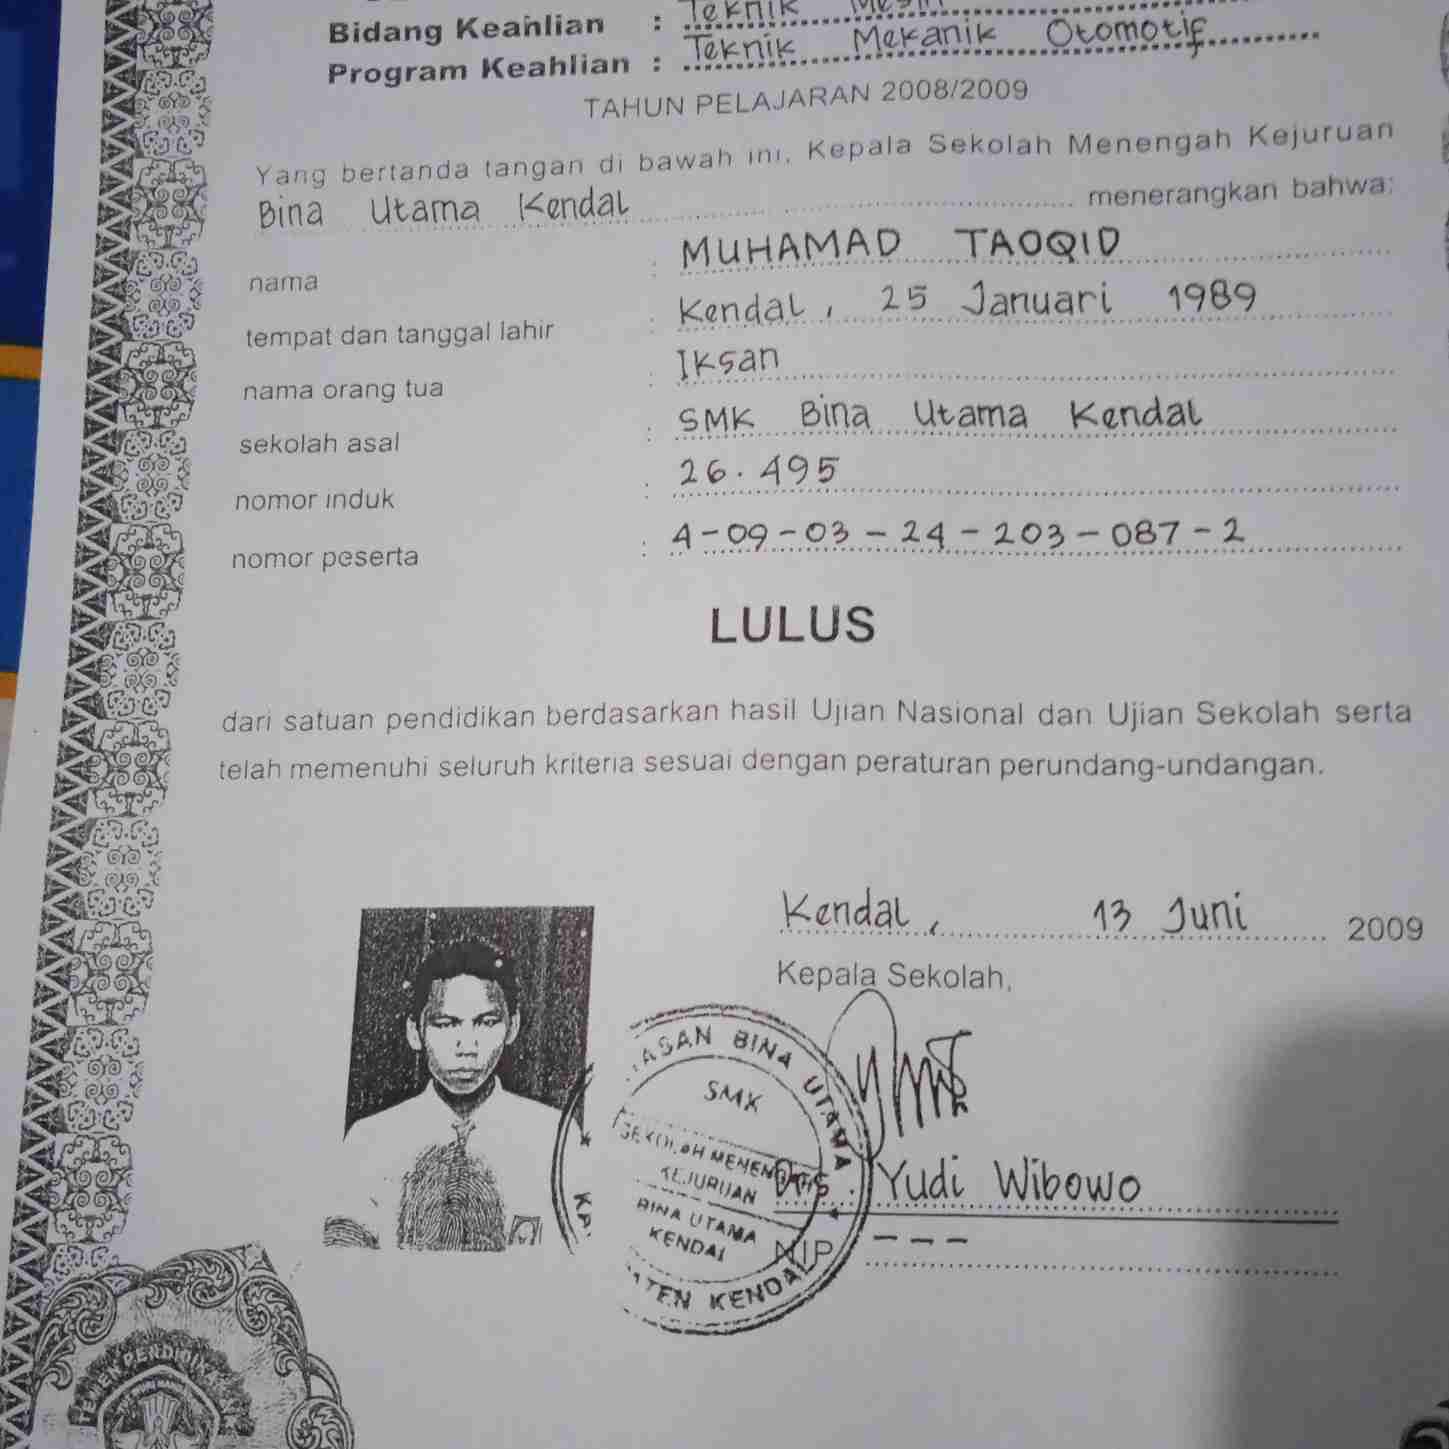 Bidang Keahlian : Teknik Mesin
Program Keahlian : Teknik Mekanik Otomotif
TAHUN PELAJARAN 2008/2009
Yang bertanda tangan di bawah ini, Kepala Sekolah Menengah Kejuruan
Bina Utama Kendal menerangkan bahwa:
nama : MUHAMAD TAOQID
tempat dan tanggal lahir : Kendal, 25 Januari 1989
nama orang tua : Iksan
sekolah asal : SMK Bina Utama Kendal
nomor induk : 26.495
nomor peserta : 4-09-03-24-203-087-2
LULUS
dari satuan pendidikan berdasarkan hasil Ujian Nasional dan Ujian Sekolah serta
telah memenuhi seluruh kriteria sesuai dengan peraturan perundang-undangan.
Kendal, 13 Juni 2009
Kepala Sekolah,
ASAN BINA UTAMA
SMK
SEKOLAH MENEN
KEJURUAN
BINA UTAMA
KENDAL
ATEN KENDAL
Drs. Yudi Wibowo
NIP - - -
TEMEN PENDIDIK